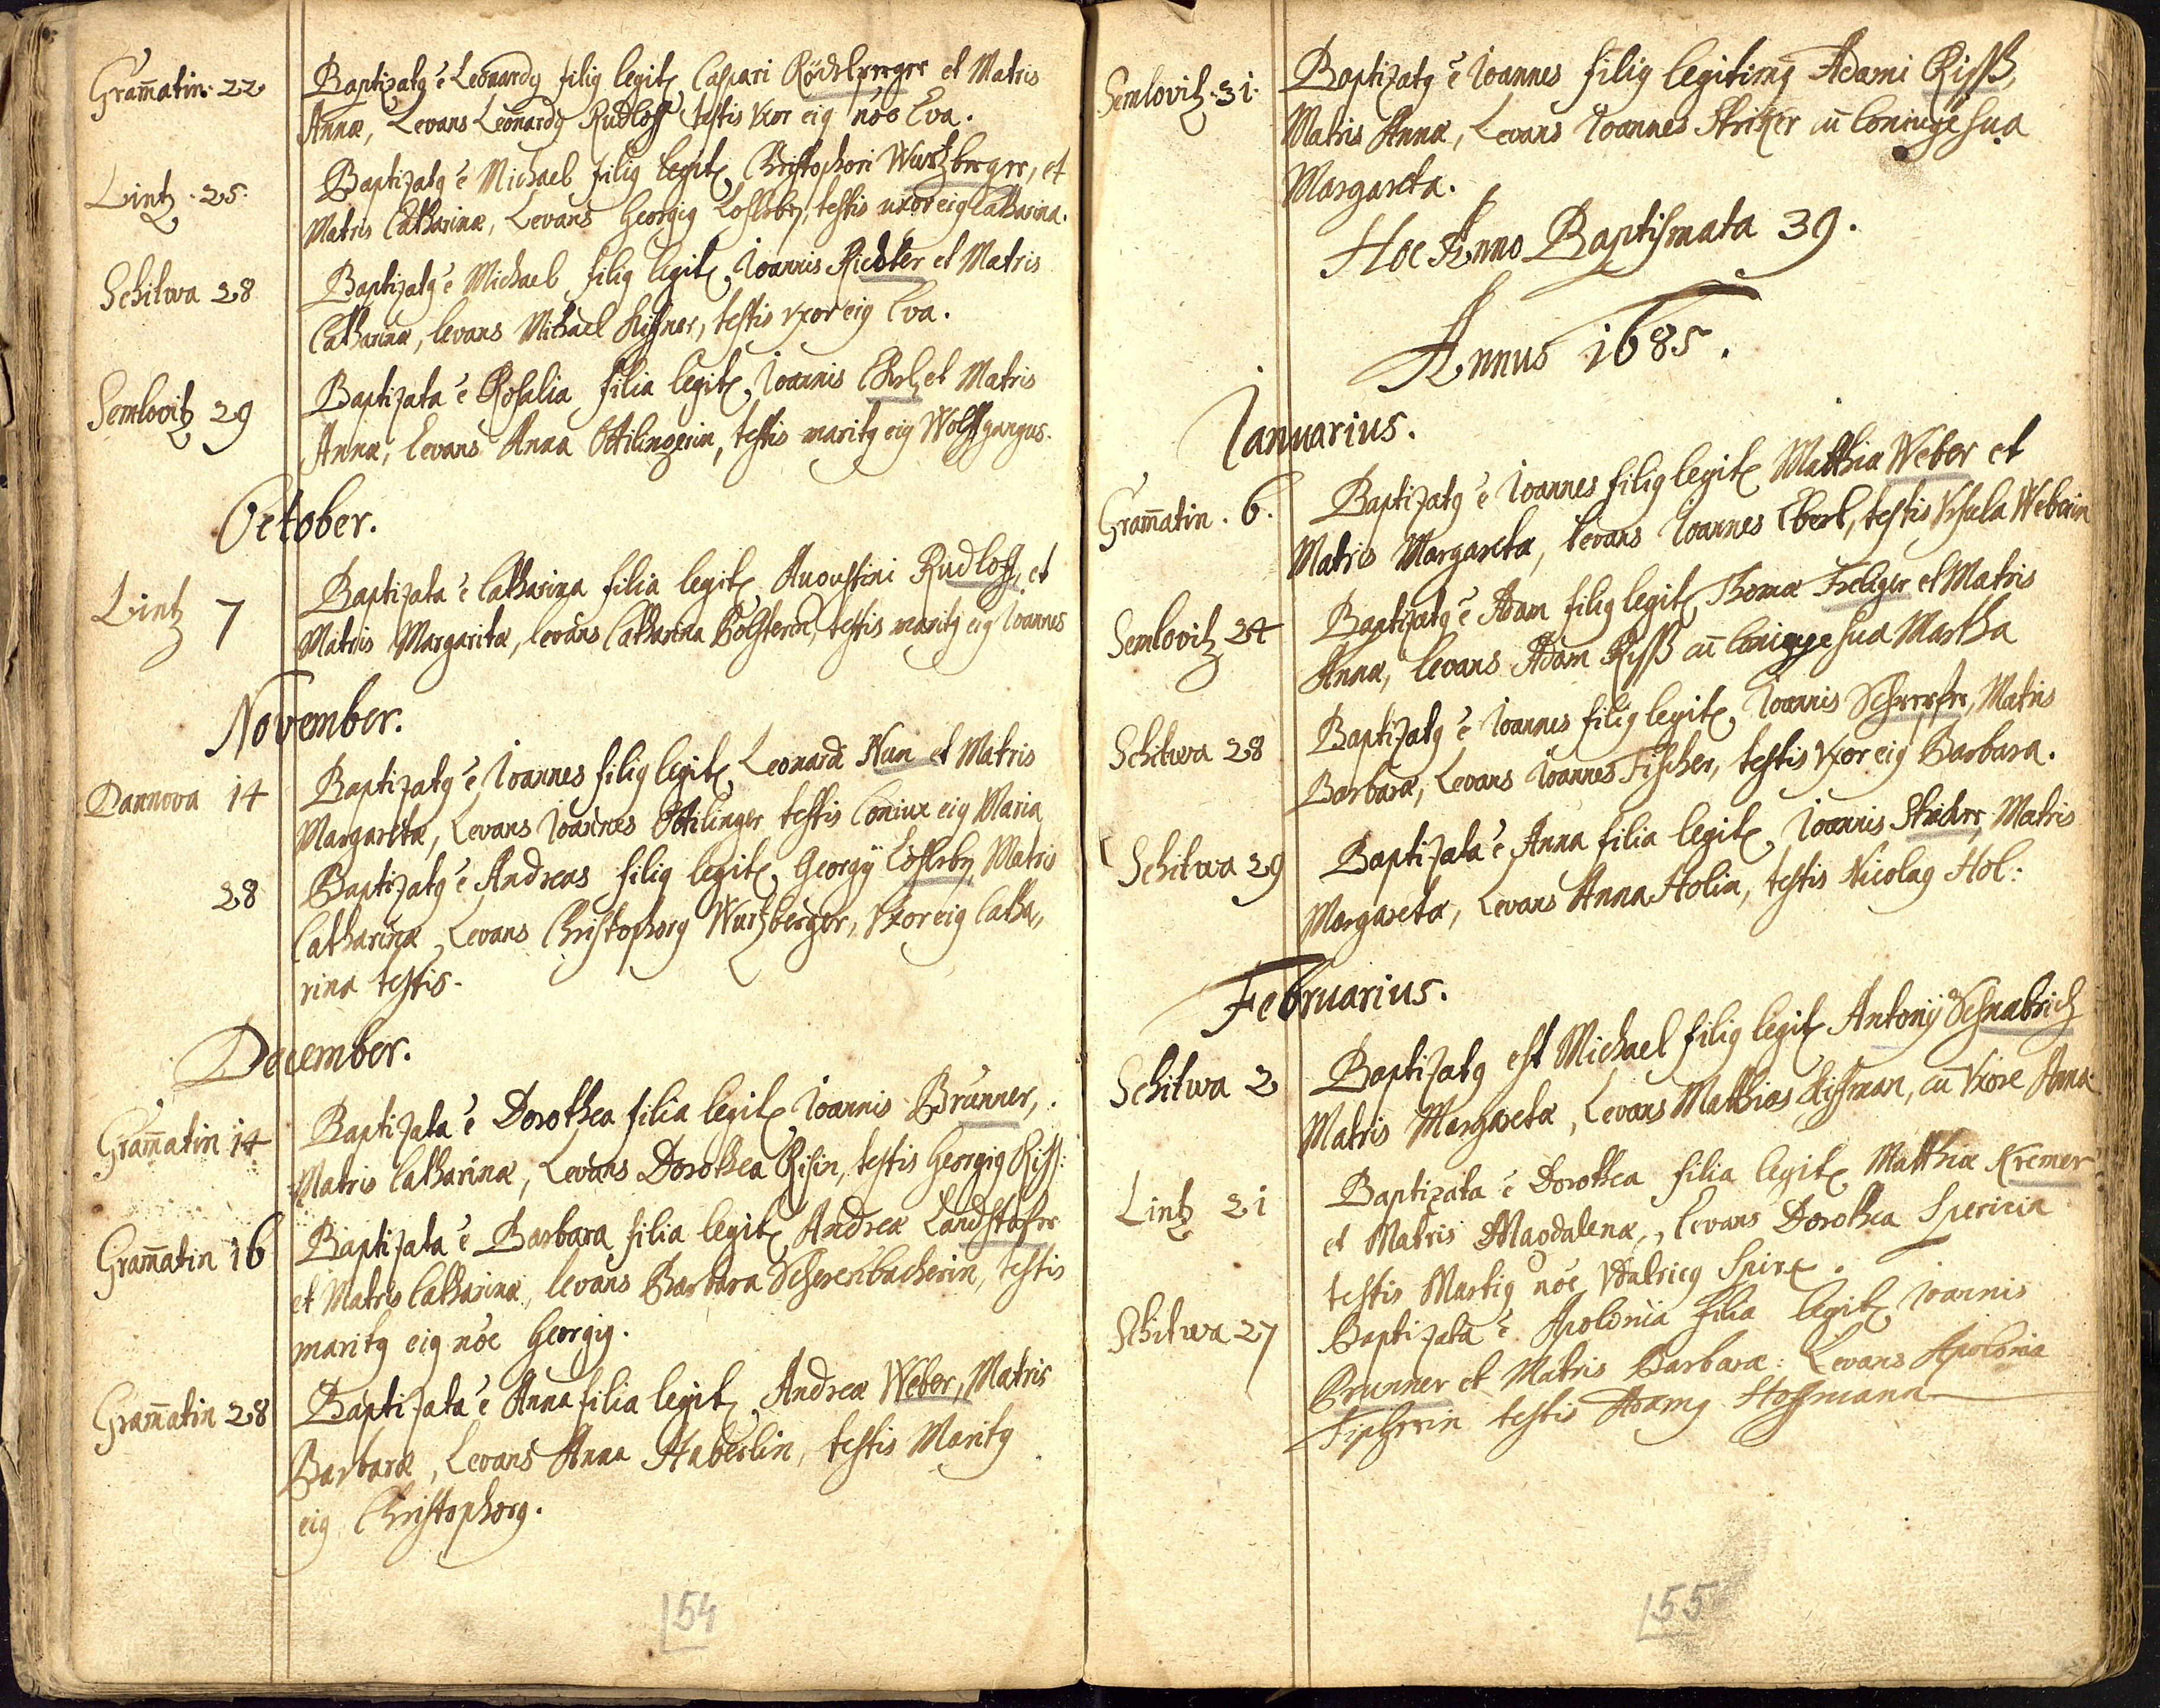 Gram̄atin. 22 Baptizatꝰ ē Leonardꝰ filiꝰ legit. Caspari Rödelperger et Matris
Annæ, Levans Leonardꝰ Rudloff testis Vxor eiꝰ nōe Eva.
Lintz. 25. Baptizatꝰ ē Michael filiꝰ legit. Christophori Wurtzberger, et
Matris Catharinæ, Levans Georgiꝰ testis uxor eiꝰ Catharina.
Schitwa 28 Baptizatꝰ ē Michael filiꝰ legit. Joannis Richter et Matris
Catharinæ, levans Michael testis vxor eiꝰ Eva.
Semlovitz 29 Baptizata ē Rosalia filia legit. Joannis et Matris
Annæ, levans Anna Ottilingerin, testis maritꝰ eiꝰ Wolffgangus.
October.
Lintz 7 Baptizata ē Catharina filia legit. Augustini Rudloff, et
Matris Margaritæ, levans Catharina testis maritꝰ eiꝰ Joannes
November.
Dannova 14 Baptizatꝰ ē Joannes filiꝰ legit. Leonardi Nan et Matris
Margaretæ, Levans Joannes Ottilinger testis Coniux eiꝰ Maria
28 Baptizatꝰ ē Andreas filiꝰ legit. Georgÿ Matris
Catharinæ, Levans Christophorꝰ Wurtzberger, Vxor eiꝰ Catha„
rina testis.
December.
Gram̄atin 14 Baptizata ē Dorothea filia legit. Joannis Brunner,
Matris Catharinæ, Levans Dorothea Risin, testis Georgiꝰ Riss:
Gram̄atin 16 Baptizata ē Barbara filia legit. Andreæ Landstofer
et Matris Catharinæ, levans Barbara Scherenbacherin, testis
maritꝰ eiꝰ nōe Georgiꝰ.
Gram̄atin 28 Baptizata ē Anna filia legit. Andreæ Weber, Matris
Barbaræ, Levans Anna Haberlin, testis Maritꝰ
eiꝰ Christophorꝰ.
54
Semlovitz. 31. Baptizatꝰ ē Joannes filiꝰ legitimꝰ Adami Risß,
Matris Annæ, Levans Joannes Striker cū Coniuge sua
Margareta.
Hoc Anno Baptismata 39.
Annus 1685.
Januarius.
Gram̄atin. 6. Baptizatꝰ ē Joannes filiꝰ legit. Matthiæ Weber et
Matris Margaretæ, levans Joannes Eberl, testis Vrsula Weberin
Semlovitz 24 Baptizatꝰ ē Adam filiꝰ legit. Thomæ Freliger et Matris
Annæ, levans Adam Risß cū Coniuge sua Martha
Schitwa 28 Baptizatꝰ ē Joannes filiꝰ legit. Joannis Matris
Barbaræ, Levans Joannes Fischer, testis Vxor eiꝰ Barbara.
Schitwa 29 Baptizata ē Anna filia legit. Joannis Matris
Margaretæ, Levans Anna Holin, testis Nicolaꝰ Hol:
Februarius.
Schitwa 2 Baptizatꝰ est Michael filiꝰ legit. Antonÿ Schnabrich
Matris Margaretæ, Levans Matthias cū Vxore Anna
Lintz 21 Baptizata ē Dorothea filia legit. Matthiæ Kremer
et Matris Magdalenæ, levans Dorothea Spericin
testis Maritꝰ nōe Vdalricꝰ
Schitwa 27 Baptizata ē Apolonia filia legit. Joannis
Brunner et Matris Barbaræ: Levans Apolonia
Fischerin testis Adamꝰ Hoffmann
55